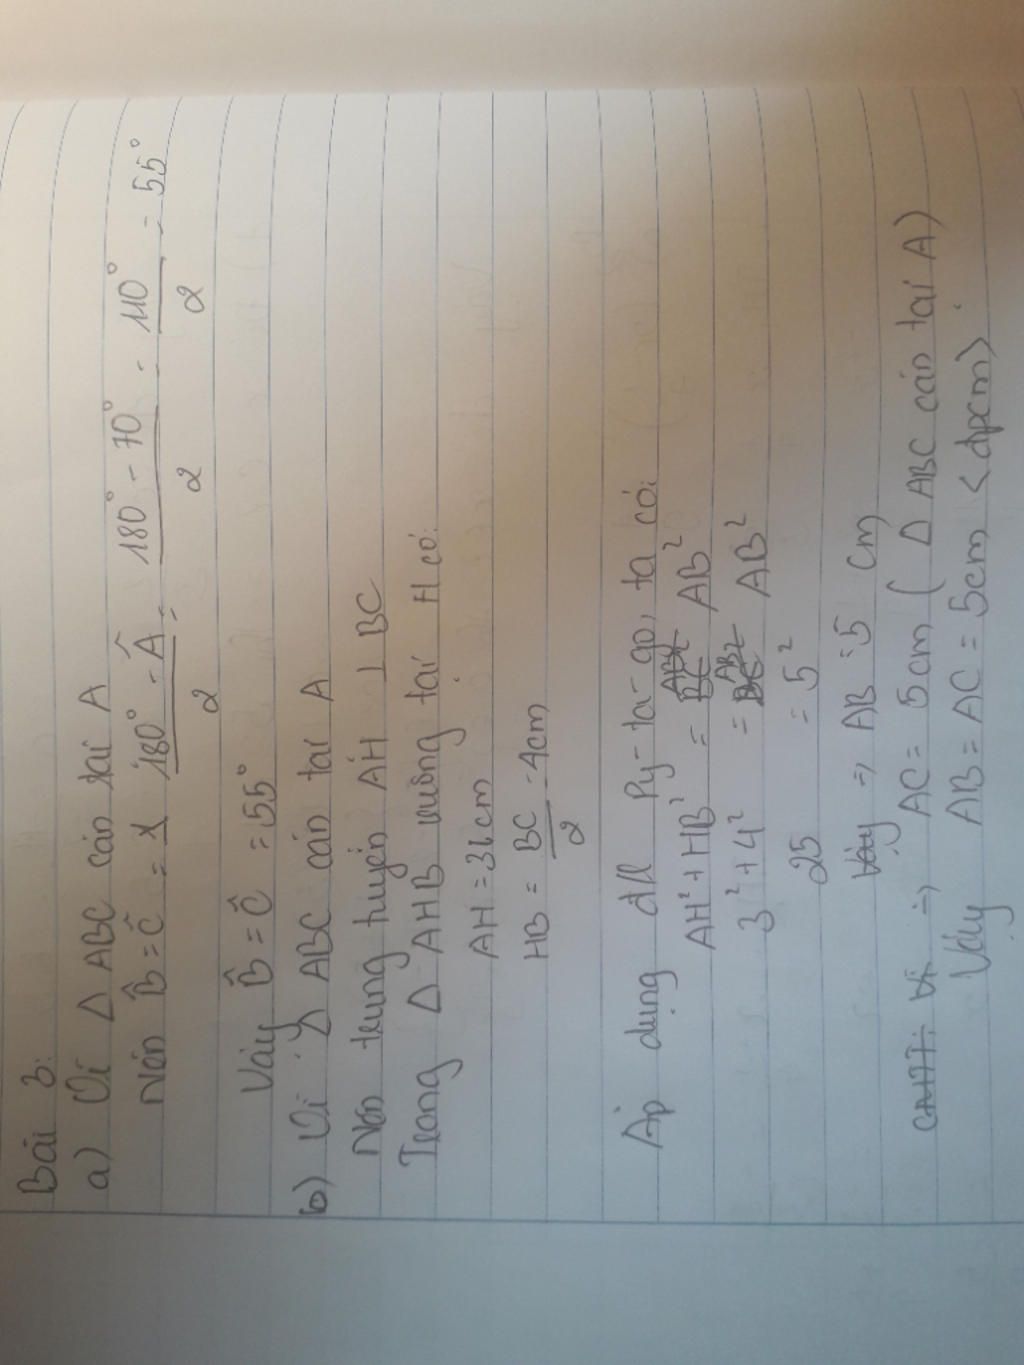 Bài 3:
a) Vì Δ ABC cân tại A
Nên B̂ = Ĉ = X (180° - Â)/2 = (180° - 70°)/2 = 110°/2 = 55°
Vậy B̂ = Ĉ = 55°
b) Vì Δ ABC cân tại A
Nên trung tuyến AH ⊥ BC
Trong Δ AHB vuông tại H có:
AH = 3cm
HB = BC/2 = 4cm
Áp dụng đ/l Py-ta-go, ta có:
AH² + HB² = AB²
3² + 4² = AB²
25 = 5²
Vậy => AB = 5 cm
CMTT: Vì => AC = 5cm (Δ ABC cân tại A)
Vậy AB = AC = 5cm <đpcm>